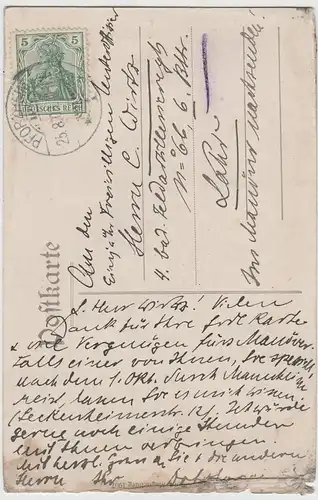 5 5
DEUTSCHES REICH
PFORZHEIM
26.8.
Postkarte
An den
Einjähr. Freiwilligen Unteroffizier
Herrn C. Wirtz
4. bad. Feldartillerieregt
No 66, 6. Bttr.
Lahr
Ins Manöver nachsenden!
L. Herr Wirtz! Vielen
Dank für Ihre frdl. Karte
u. viel Vergnügen fürs Manöver.
Falls einer von Ihnen,
nach dem 1. Okt. durch Mannheim
reist, lassen Sie es mich wissen
(Seckenheimerstr. Ich würde
gerne noch einige Stunden
mit Ihnen verbringen.
Mit herzl. Gruss an Sie u. die andern
Herrn Ihr